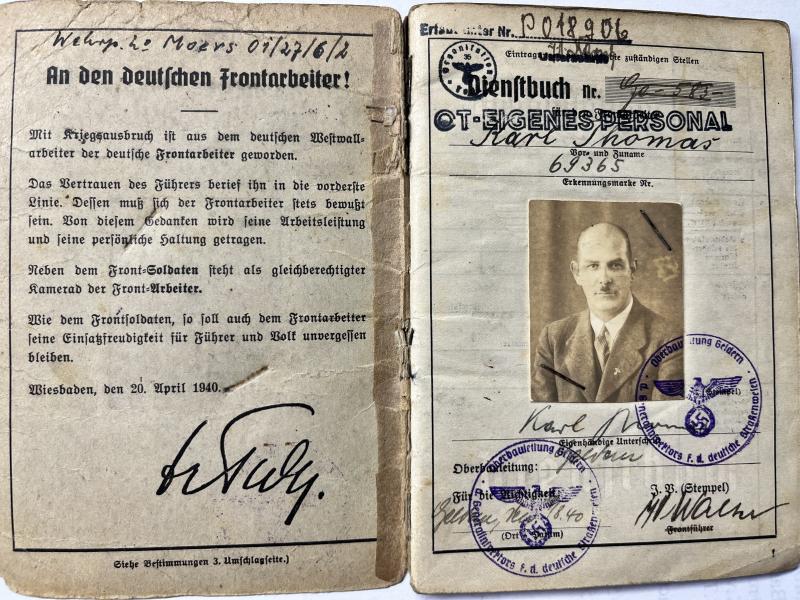 Wehrp. Moers 01/27/6/2
An den deutschen Frontarbeiter!
Mit Kriegsausbruch ist aus dem deutschen Westwall-
arbeiter der deutsche Frontarbeiter geworden.
Das Vertrauen des Führers berief ihn in die vorderste
Linie. Dessen muß sich der Frontarbeiter stets bewußt
sein. Von diesem Gedanken wird seine Arbeitsleistung
und seine persönliche Haltung getragen.
Neben dem Front-Soldaten steht als gleichberechtigter
Kamerad der Front-Arbeiter.
Wie dem Frontsoldaten, so soll auch dem Frontarbeiter
seine Einsatzfreudigkeit für Führer und Volk unvergessen
bleiben.
Wiesbaden, den 20. April 1940.
Siehe Bestimmungen 3. Umschlagseite.)
Nr. P 018906
zuständigen Stellen
Organisation
Dienstbuch nr. 583
OT-EIGENES PERSONAL
Karl Thomas
Vor- und Zuname
69365
Erkennungsmarke Nr.
Oberbauleitung Geldern
d. Generalinspektors f. d. deutsche Straßenwesen
(Stempel)
Karl
Eigenhändige Unterschrift
Oberbauleitung: Geldern
Für die Richtigkeit:
J. V. (Stempel)
40
(Ort Datum)
Frontführer
Oberbauleitung Geldern
d. Generalinspektors f. d. deutsche Straßenwesen